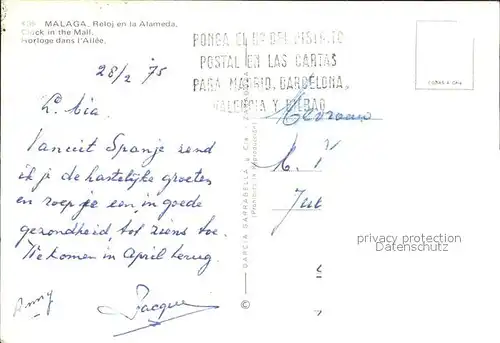 MALAGA. Reloj en la Alameda.
Clock in the Mall.
Horloge dans l'Allée.
PONGA EL Nº DEL DISTRITO
POSTAL EN LAS CARTAS
PARA MADRID, BARCELONA,
VALENCIA Y BILBAO
28/2 75
L. Cia
Vanuit Spanje zend
ik je de hartelijke groeten
en roep je een, in goede
gezondheid, tot ziens toe.
We komen in April terug.
Anny
Jacque
Mevrouw
GARCIA GARRABELLA y Cia. - ZARAGOZA
(Prohibida la reproducción)
©
privacy protection
Datenschutz